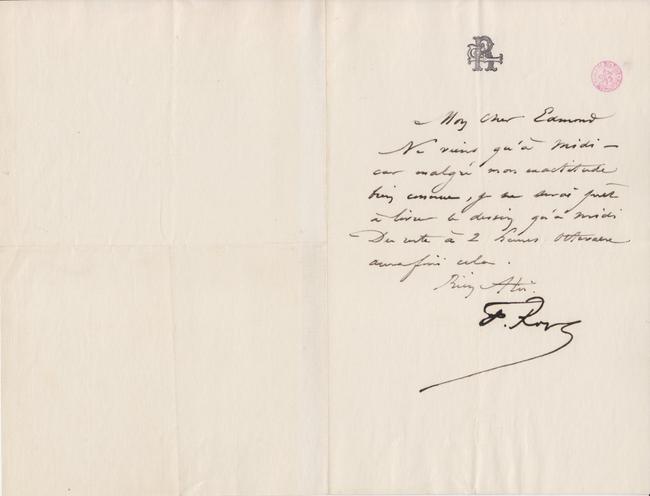 Mon cher Edmond
Ne viens qu'à midi –
car malgré mon exactitude
bien connue, je ne serai prêt
à livrer le dessin qu'à midi
Du reste à 2 heures
aura fini cela.
Bien à toi.
F. Rops